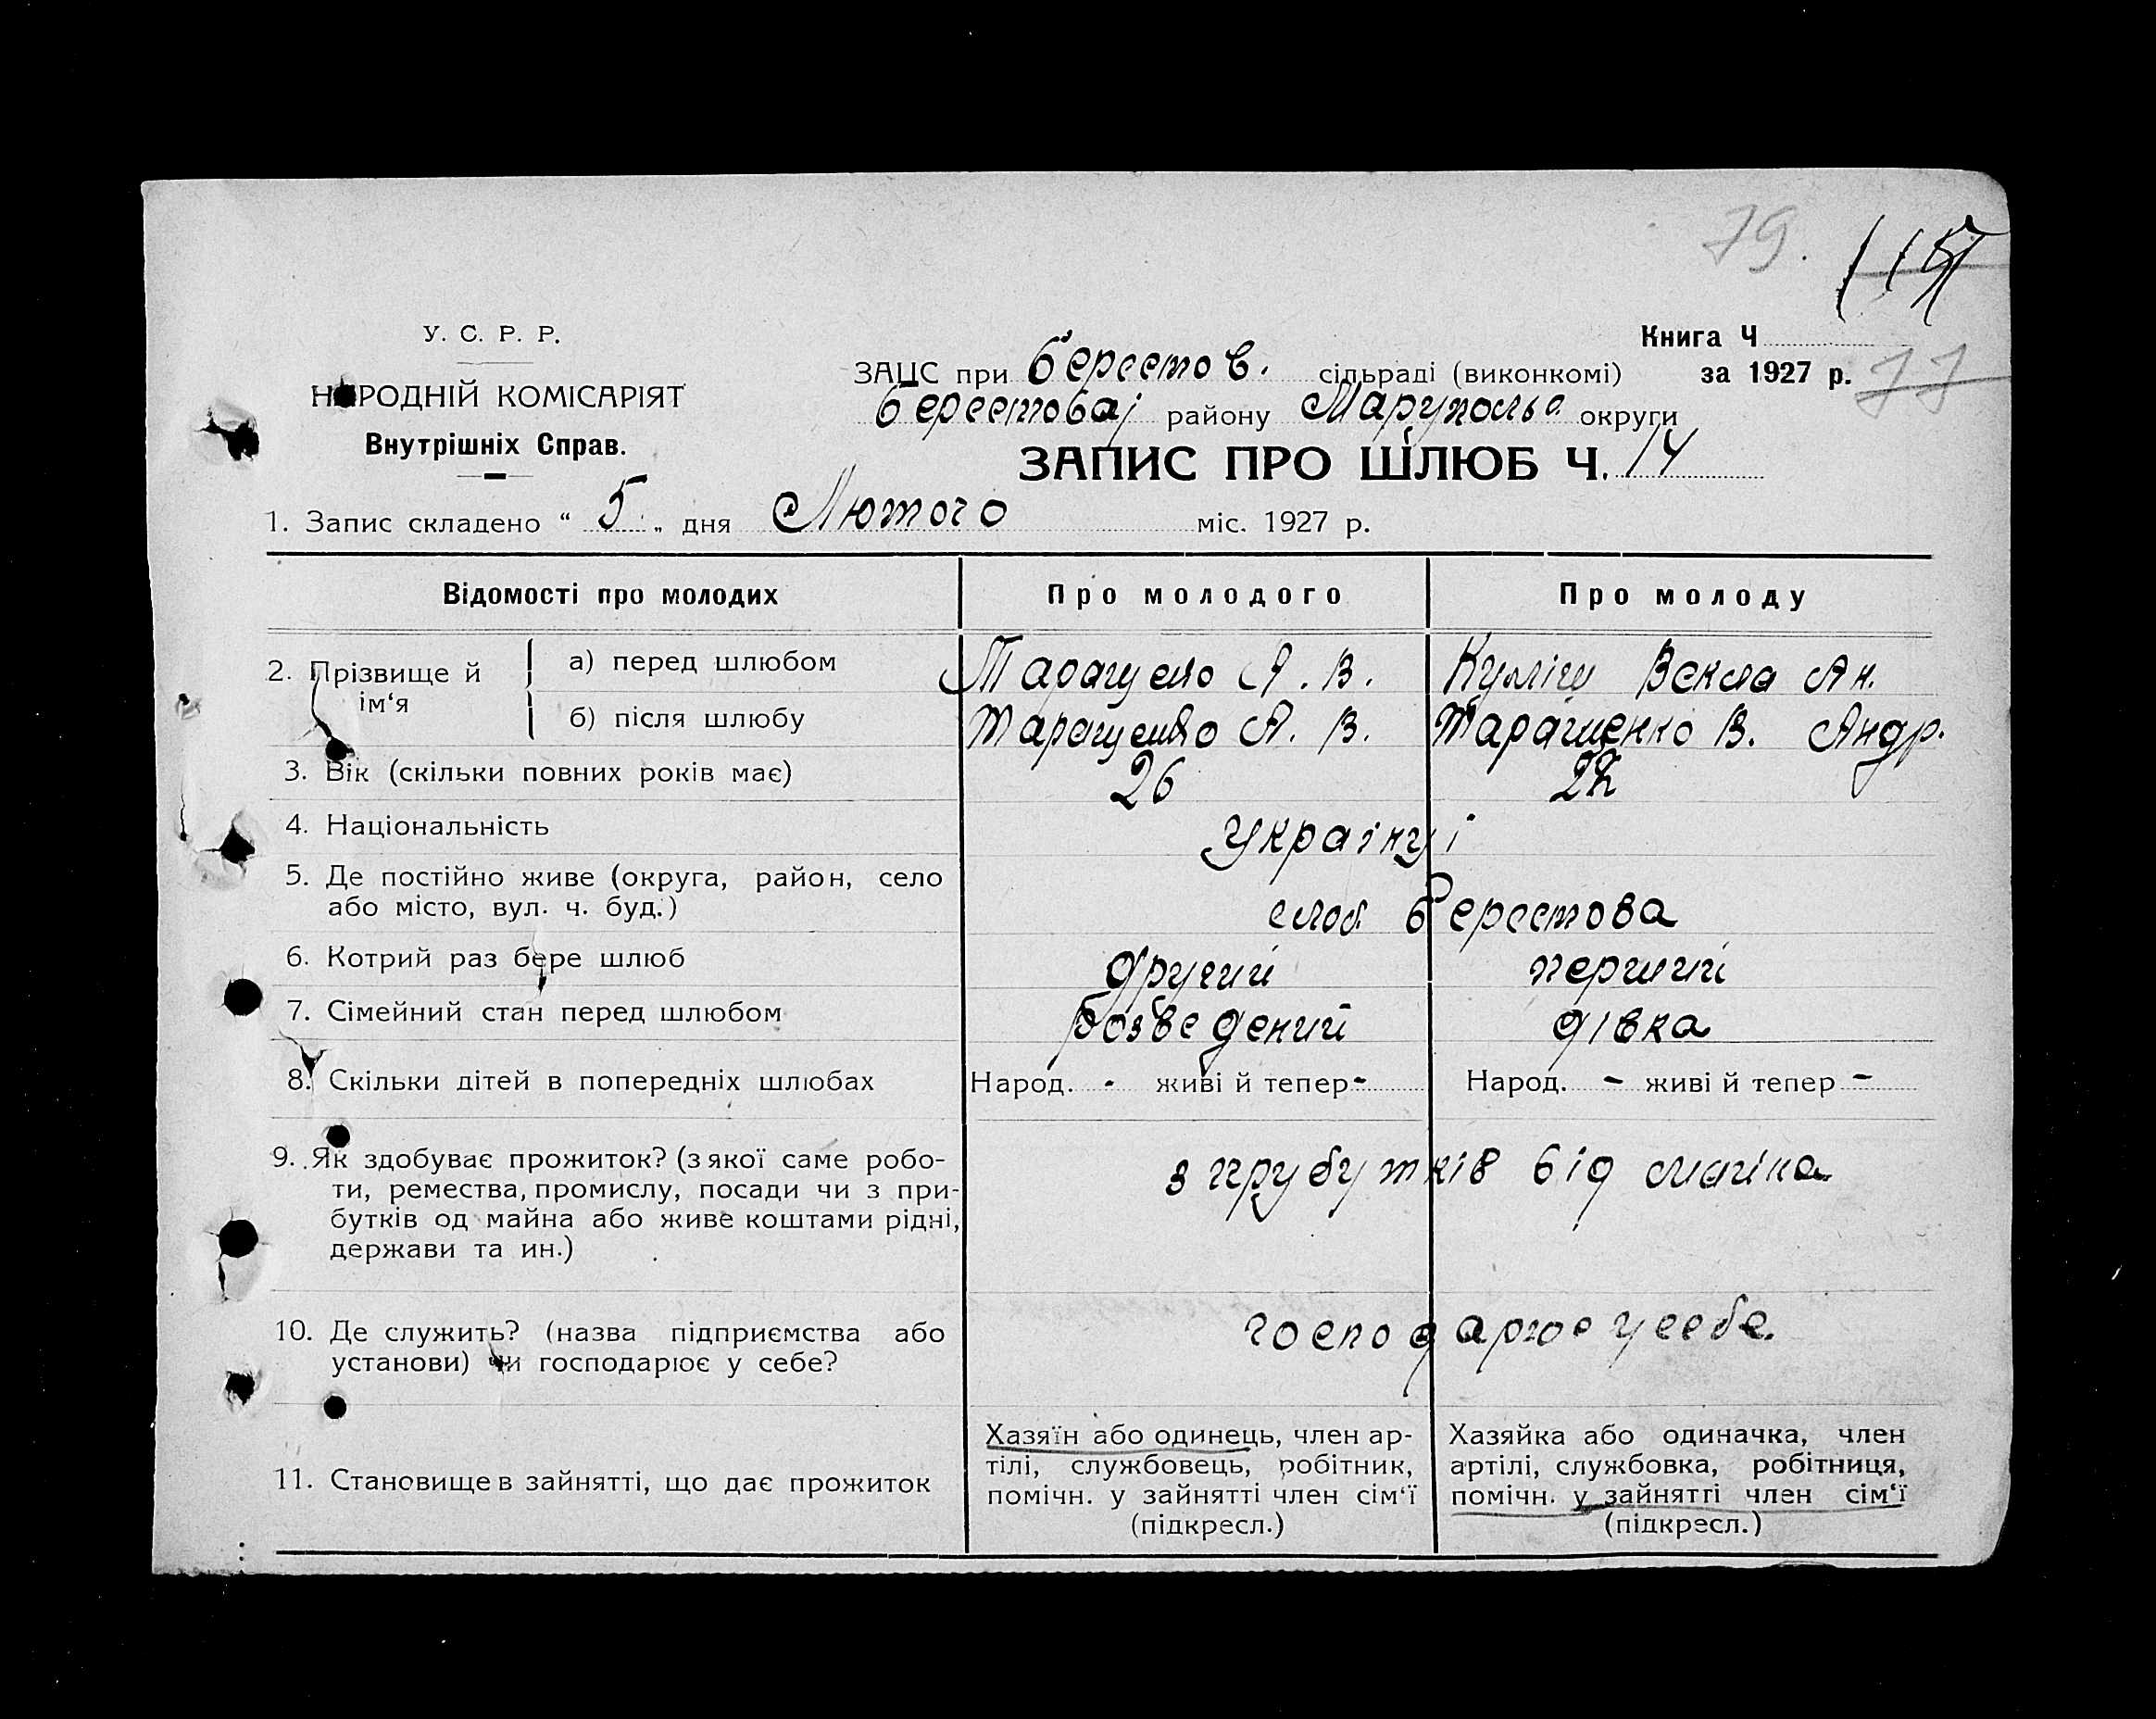 79.
115
У. С. Р. Р.
Книга Ч
НАРОДНІЙ КОМІСАРІЯТ
ЗАЦС при Берестов. сільраді (виконкомі) за 1927 р. 77
Внутрішніх Справ.
Берестовај району Маруполь округи
ЗАПИС ПРО ШЛЮБ Ч. 14
1. Запис складено “ 5 „ дня Лютого міс. 1927 р.
Відомості про молодих Про молодого Про молоду
2. Прізвище й ім‘я
а) перед шлюбом Таращенко А. В. Куліш Векла Ан.
б) після шлюбу Таращенко А. В. Таращенко В. Андр.
3. Вік (скільки повних років має) 26
4. Національність Українці
5. Де постійно живе (округа, район, село
або місто, вул. ч. буд.) слоб. Берестова
6. Котрий раз бере шлюб другий перший
7. Сімейний стан перед шлюбом розведений дівка
8. Скільки дітей в попередніх шлюбах Народ. - живі й тепер - Народ. - живі й тепер -
9. Як здобуває прожиток? (з якої саме робо-
ти, ремества, промислу, посади чи з при-
бутків од майна або живе коштами рідні,
держави та ин.)
з прубутків від маіна
10. Де служить? (назва підприємства або
установи) чи господарює у себе?
господарює у себе.
11. Становище в зайнятті, що дає прожиток
Хазяїн або одинець, член ар-
тілі, службовець, робітник,
помічн. у зайнятті член сім‘ї
(підкресл.)
Хазяйка або одиначка, член
артілі, службовка, робітниця,
помічн. у зайнятті член сім‘ї
(підкресл.)